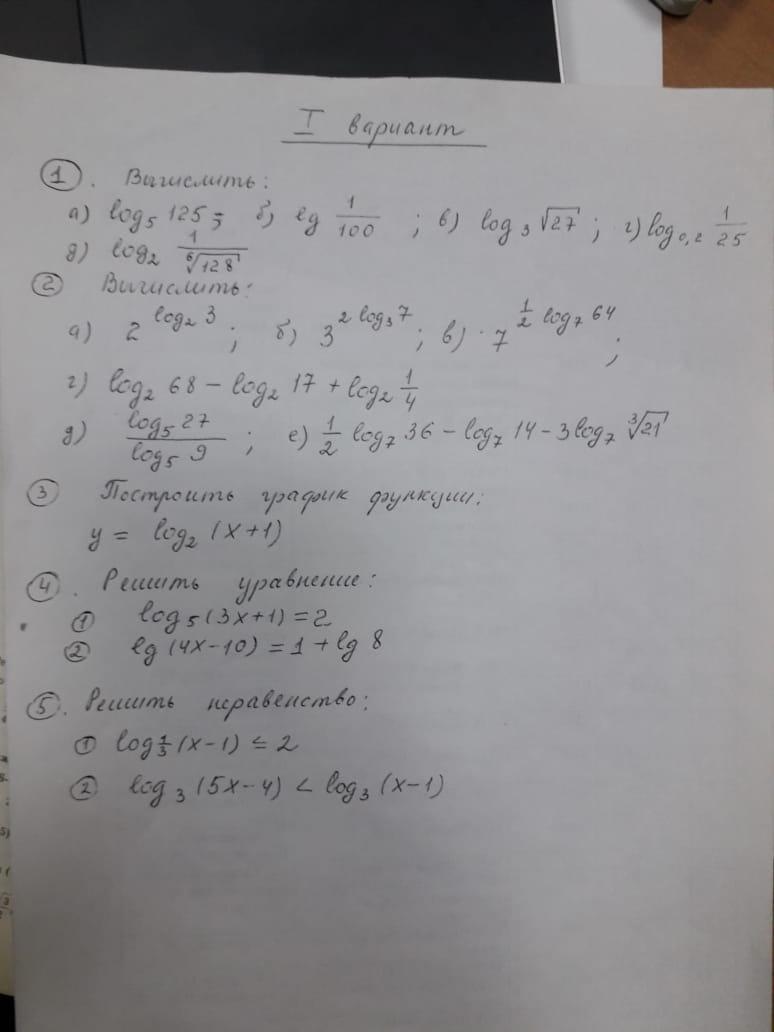 I вариант
① . Вычислить:
а) log₅ 125 ; б) lg 1/100 ; в) log₃ √27 ; г) log₀,₂ 1/25
д) log₂ 1/⁶√128
② Вычислить:
а) 2^(log₂ 3) ; б) 3^(2 log₃ 7) ; в) 7^(1/2 log₇ 64) ;
г) log₂ 68 – log₂ 17 + log₂ 1/4
д) log₅ 27 / log₅ 9 ; е) 1/2 log₇ 36 – log₇ 14 – 3 log₇ ³√21
③ Построить график функции:
y = log₂ (x+1)
④ . Решить уравнение:
① log₅ (3x+1) = 2
② lg (4x–10) = 1 + lg 8
⑤ . Решить неравенство:
① log 1/3 (x–1) ≤ 2
② log₃ (5x–4) < log₃ (x–1)